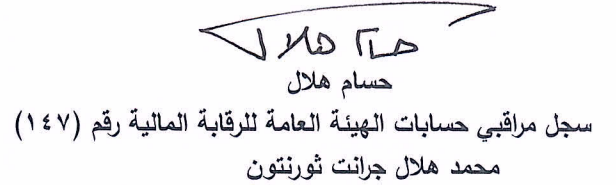 حسام هلال
حسام هلال
سجل مراقبي حسابات الهيئة العامة للرقابة المالية رقم (١٤٧)
محمد هلال جرانت ثورنتون